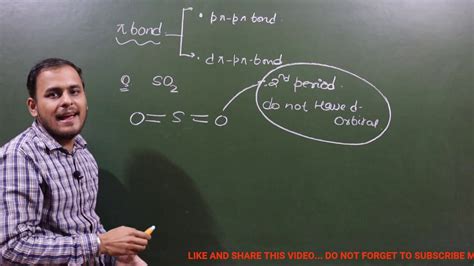 π bond
• pπ-pπ bond.
• dπ-pπ-bond
Q SO₂
O=S=O
2nd period.
do not Have d-
Orbital
LIKE AND SHARE THIS VIDEO... DO NOT FORGET TO SUBSCRIBE M